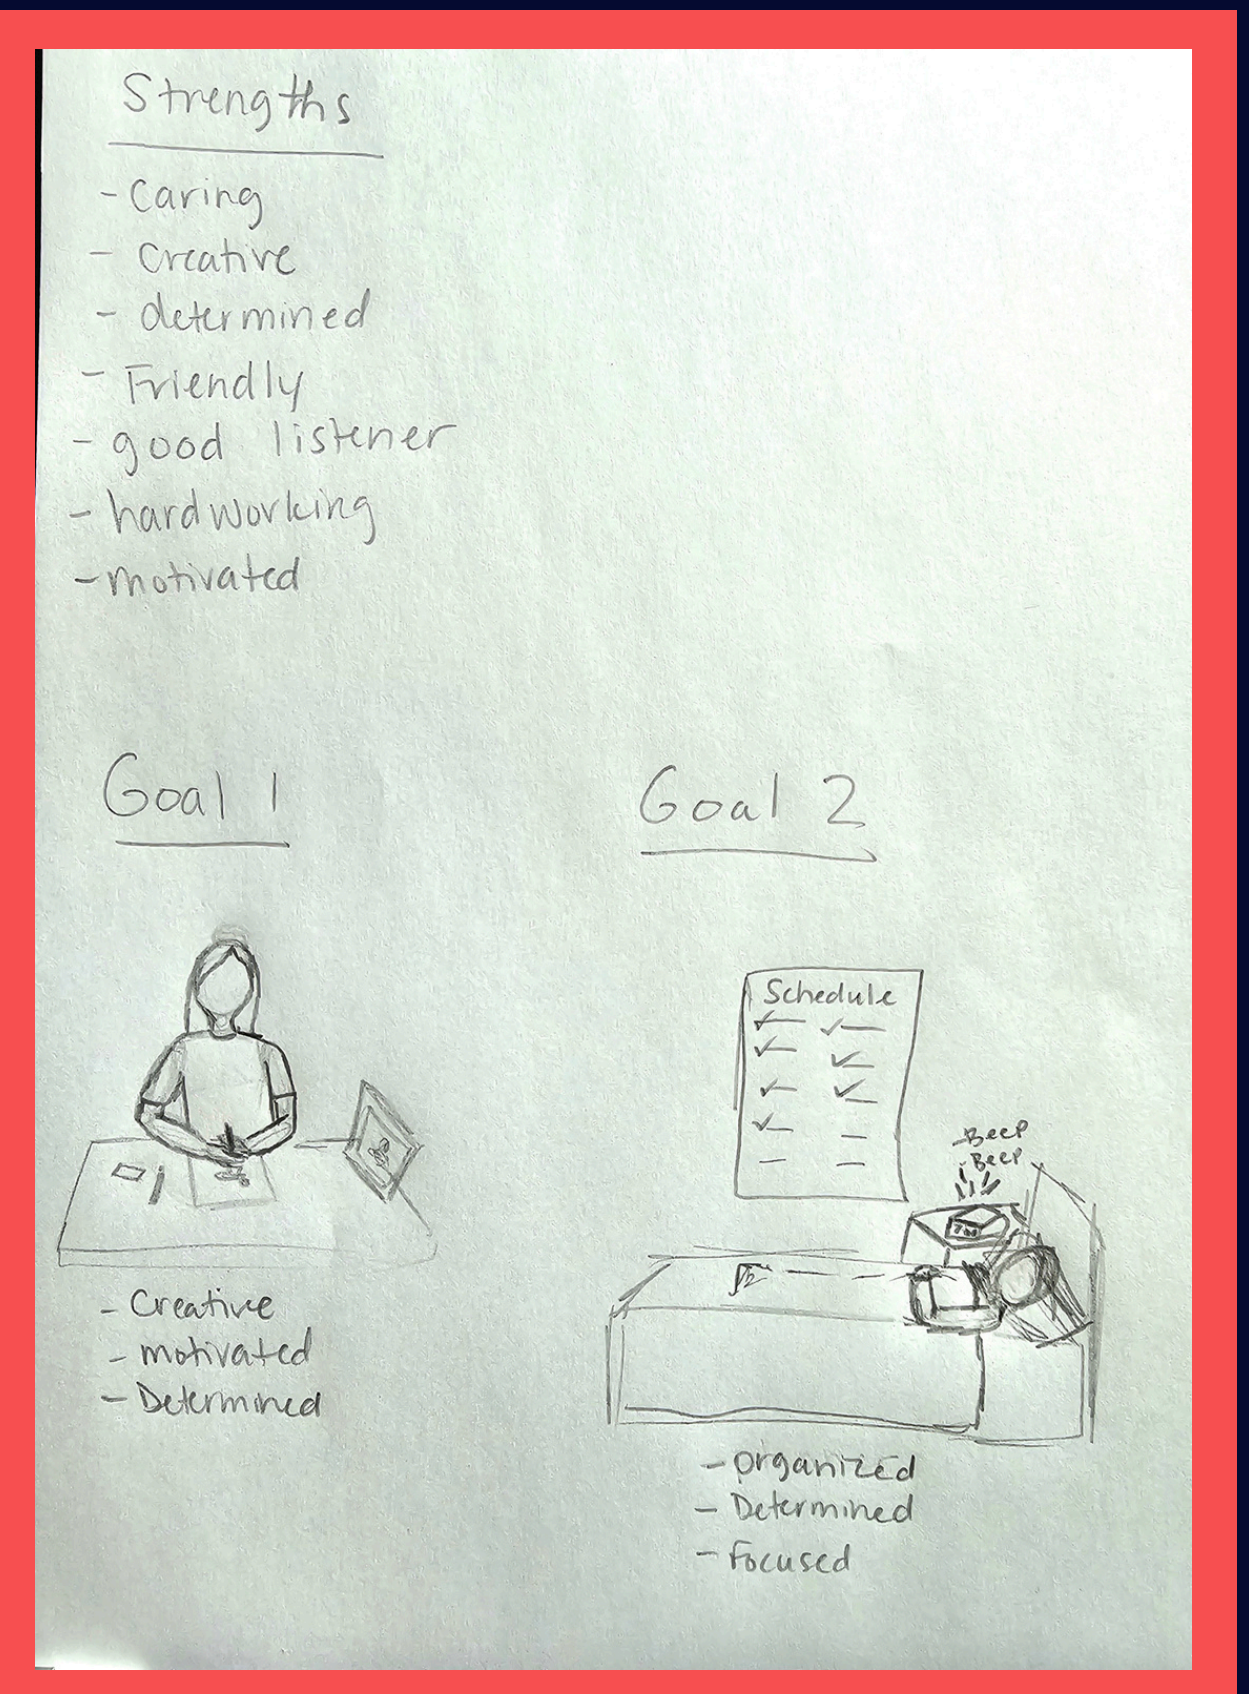 Strengths
- Caring
- Creative
- determined
- Friendly
- good listener
- hardworking
- motivated
Goal 1
- Creative
- motivated
- Determined
Goal 2
Schedule
-Beep
-Beep
- organized
- Determined
- Focused